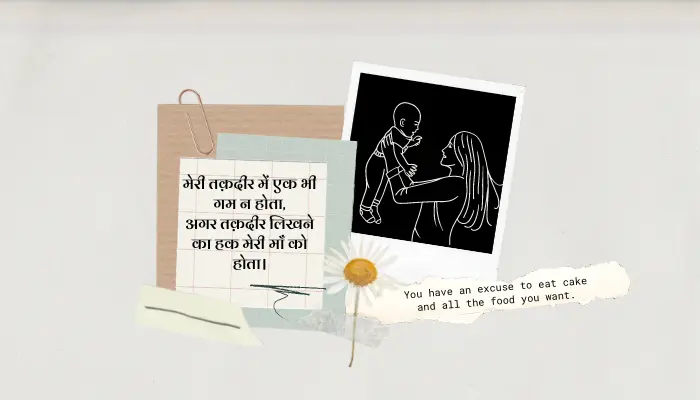 मेरी तक़दीर में एक भी
गम न होता,
अगर तक़दीर लिखने
का हक मेरी माँ को
होता।
You have an excuse to eat cake
and all the food you want.